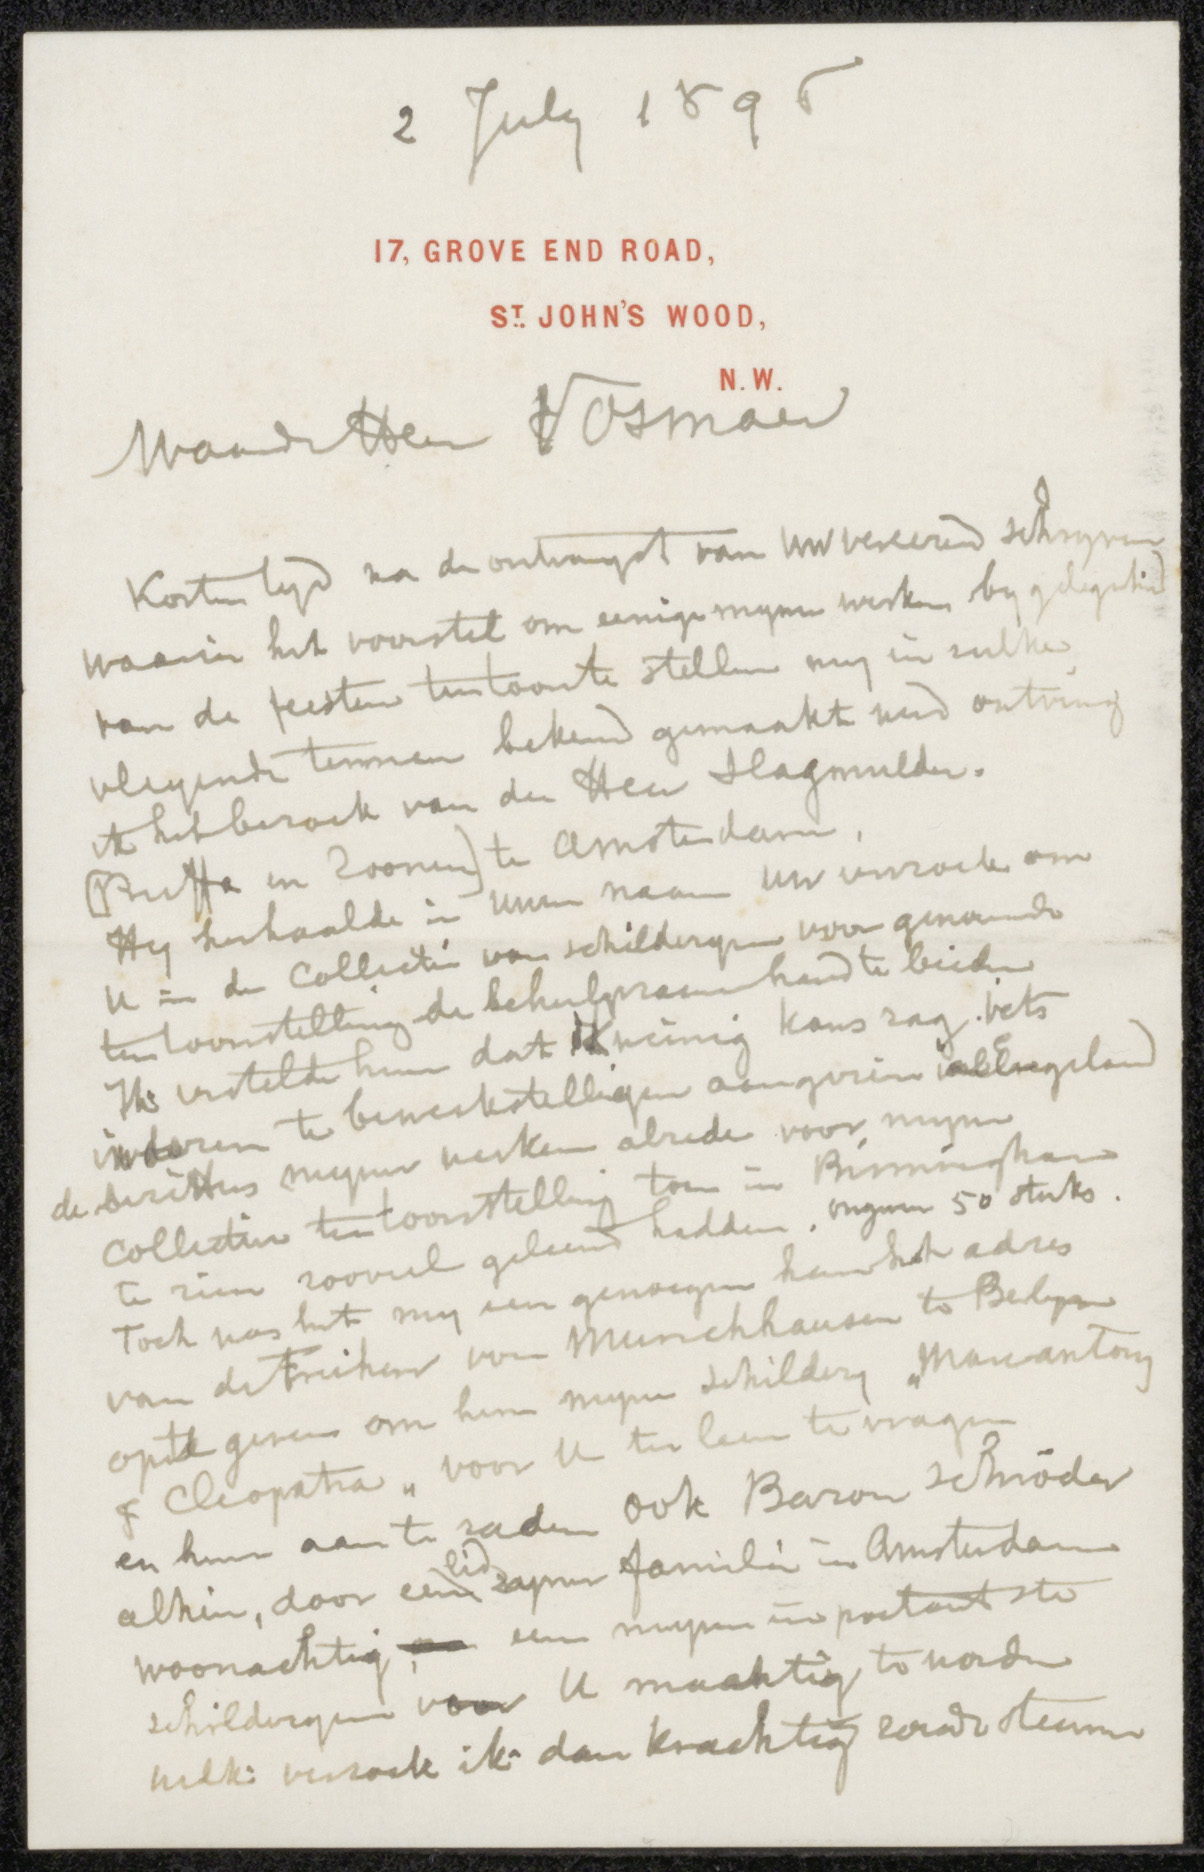 2 July 1898
17, GROVE END ROAD,
ST. JOHN'S WOOD,
N.W.
Waarde Heer Vosmaer
Korten tyd na de ontvangst van Uw vereerend schryven
waarin het voorstel om eenige myner werken by gelegenheid
van de feesten tentoon te stellen my in zulke
vleyende termen bekend gemaakt werd ontving
ik het bezoek van den Heer Slagmulder.
(Buffa en Zoonen) te Amsterdam.
Hy herhaalde in Uwen naam Uw verzoek om
U in de Collectie van schilderyen voor genoemde
tentoonstelling de behulpzame hand te bieden
Ik vertelde hem dat ik weinig kans zag iets
te bewerkstelligen aangezien in Engeland
de bezitters myner werken alrede voor myne
Collective tentoonstelling toen in Birmingham
te zien zooveel geleend hadden. ongeveer 50 stuks.
Toch was het my een genoegen hem het adres
van de Freiherr von Munchhausen te Berlyn
op te geven om hem myne schildery „Marcantony
& Cleopatra„ voor U ter leen te vragen
en hem aan te raden ook Baron Schröder
alhier, door een lid zyner familie in Amsterdam
woonachtig, een myner importantste
schilderyen voor U machtig te worden
welk verzoek ik dan krachtig zoude steunen